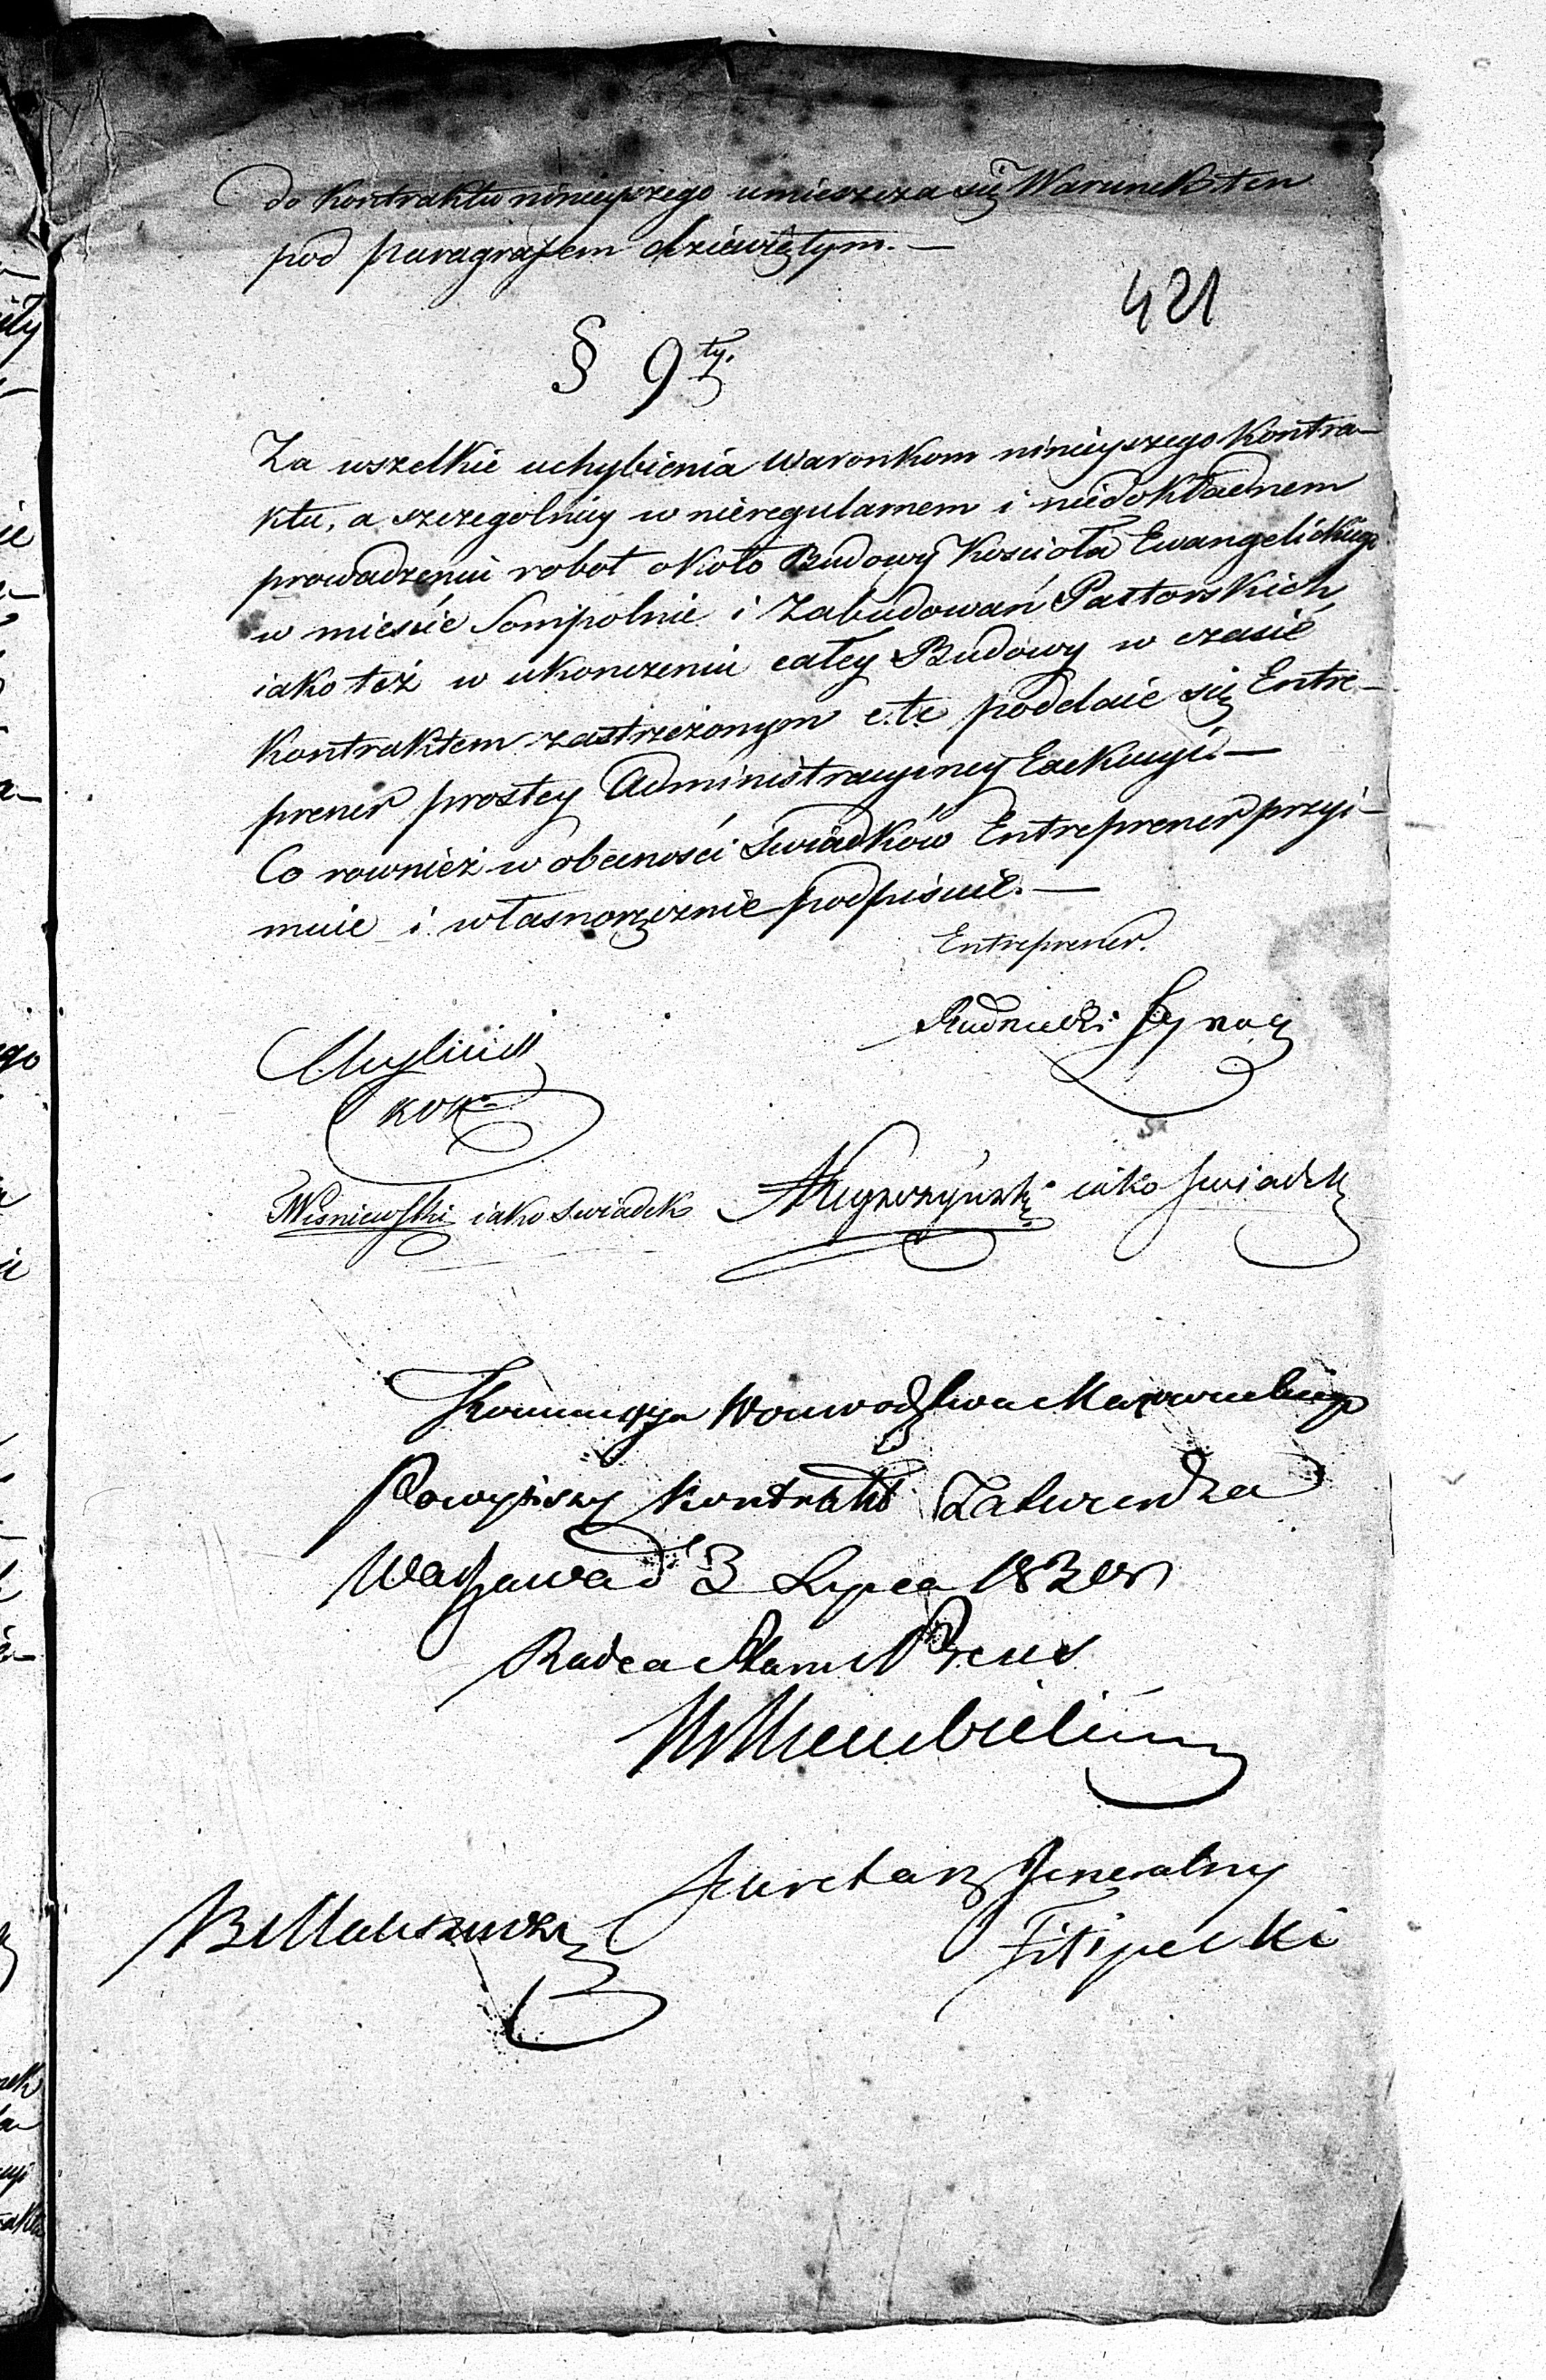 do Kontraktu ninieyszego umieszcza się Warunek ten
pod Paragrafem dziewiętym. —
421
§ 9ty.
Za wszelkie uchybienia warunkom ninieyszego Kontra-
ktu, a szczegolniey w nieregularnem i niedokładnem
prowadzeniu robot około Budowy Kościoła Ewangelickiego
w mieście Sompolnie i Zabudowań Pastorskich
iako też w ukonczeniu całey Budowy w czasie
Kontraktem zastrzeżonym etc poddaie się Entre-
prener prostey Administracyiney Exekucyi. —
Co rownież w obecności Swiadków Entreprener przyi-
muie i własnoręcznie podpisuie. —
Entreprener.
Rudnicki
Wisniewski iako swiadek
iako swiadek
Kommissya Woiewodztwa Mazowieckiego
Powyższy Kontrakt Zatwierdza
Warszawa d 3 Lipca 18
Radca Stanu Prezes
Sekretarz Jeneralny
Filipecki